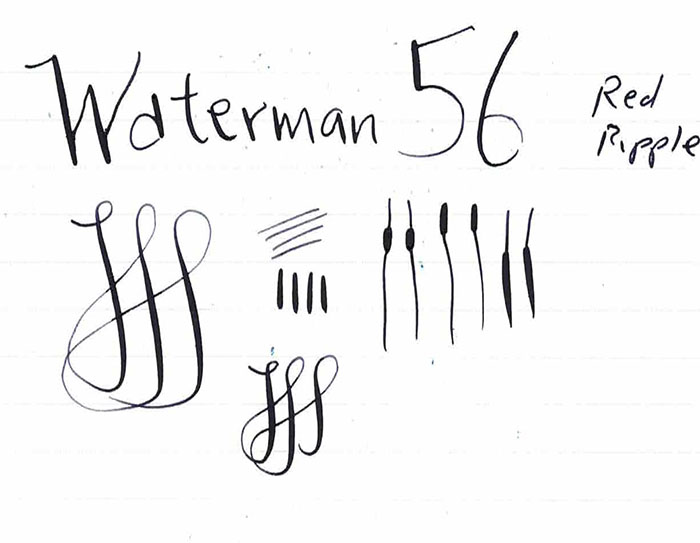 Waterman 56
Red
Ripple